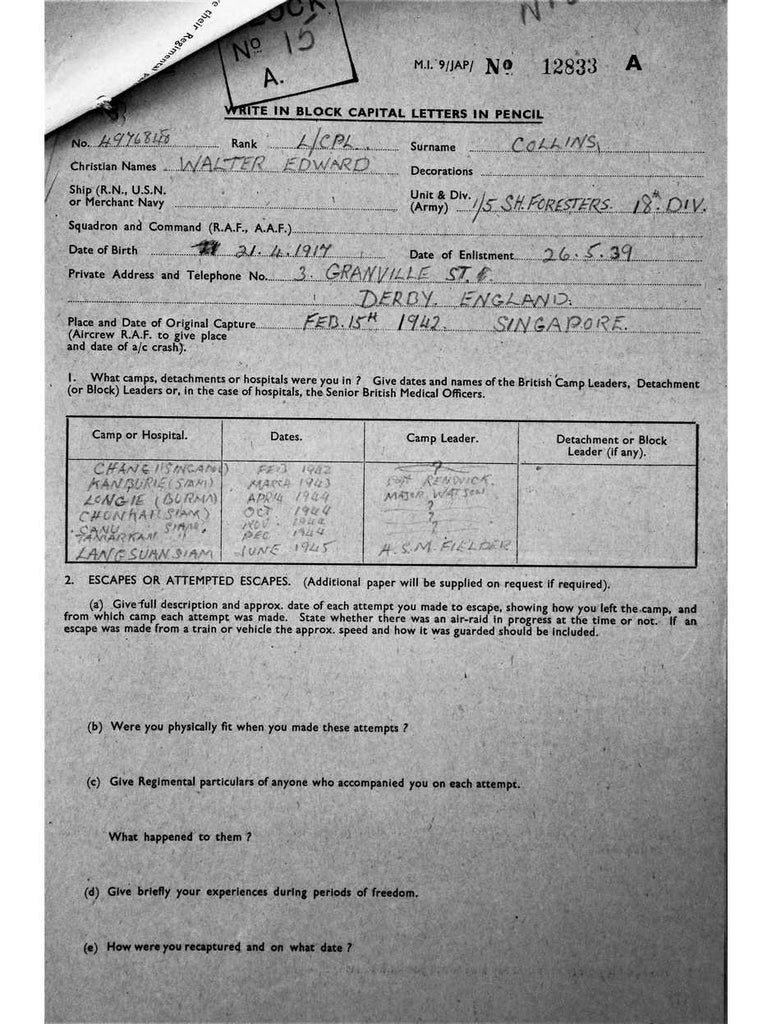 e their Regimental
BLOCK
No 15
A.
M.I. 9/JAP/ No 12833 A
WRITE IN BLOCK CAPITAL LETTERS IN PENCIL
No. 4976840 Rank L/CPL. Surname COLLINS,
Christian Names WALTER EDWARD Decorations
Ship (R.N., U.S.N. or Merchant Navy Unit & Div. (Army) 1/5 SH.FORESTERS. 18th DIV.
Squadron and Command (R.A.F., A.A.F.)
Date of Birth 21.4.1917 Date of Enlistment 26.5.39
Private Address and Telephone No. 3. GRANVILLE ST.
DERBY. ENGLAND.
Place and Date of Original Capture FEB. 15TH 1942. SINGAPORE.
(Aircrew R.A.F. to give place
and date of a/c crash).
1. What camps, detachments or hospitals were you in ? Give dates and names of the British Camp Leaders, Detachment
(or Block) Leaders or, in the case of hospitals, the Senior British Medical Officers.
Camp or Hospital. Dates. Camp Leader. Detachment or Block Leader (if any).
CHANGI (SINGAPO) FEB 1942 ?
KANBURIE (SIAM) MARCH 1943 RENWICK.
LONGIE (BURMA) APRIL 1944 MAJOR WATSON
CHONKAI (SIAM) OCT 1944 ?
CANU SIAM. NOV. 1944 ?
TAMARKAM " DEC 1944 ?
LANGSUAN SIAM JUNE 1945 H.S.M. FIELDER
2. ESCAPES OR ATTEMPTED ESCAPES. (Additional paper will be supplied on request if required).
(a) Give full description and approx. date of each attempt you made to escape, showing how you left the camp, and
from which camp each attempt was made. State whether there was an air-raid in progress at the time or not. If an
escape was made from a train or vehicle the approx. speed and how it was guarded should be included.
(b) Were you physically fit when you made these attempts ?
(c) Give Regimental particulars of anyone who accompanied you on each attempt.
What happened to them ?
(d) Give briefly your experiences during periods of freedom.
(e) How were you recaptured and on what date ?